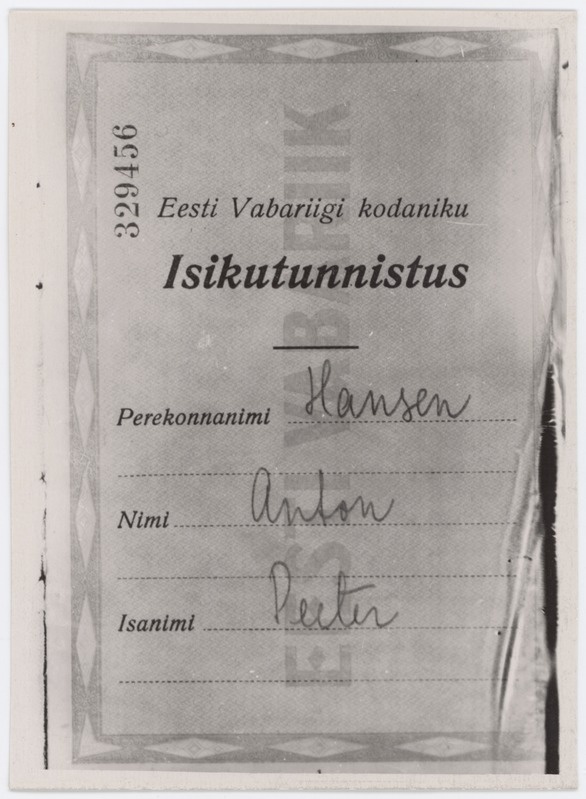 329456
Eesti Vabariigi kodaniku
Isikutunnistus
Perekonnanimi Hansen
Nimi Anton
Isanimi Peeter
EESTI VABARIIK